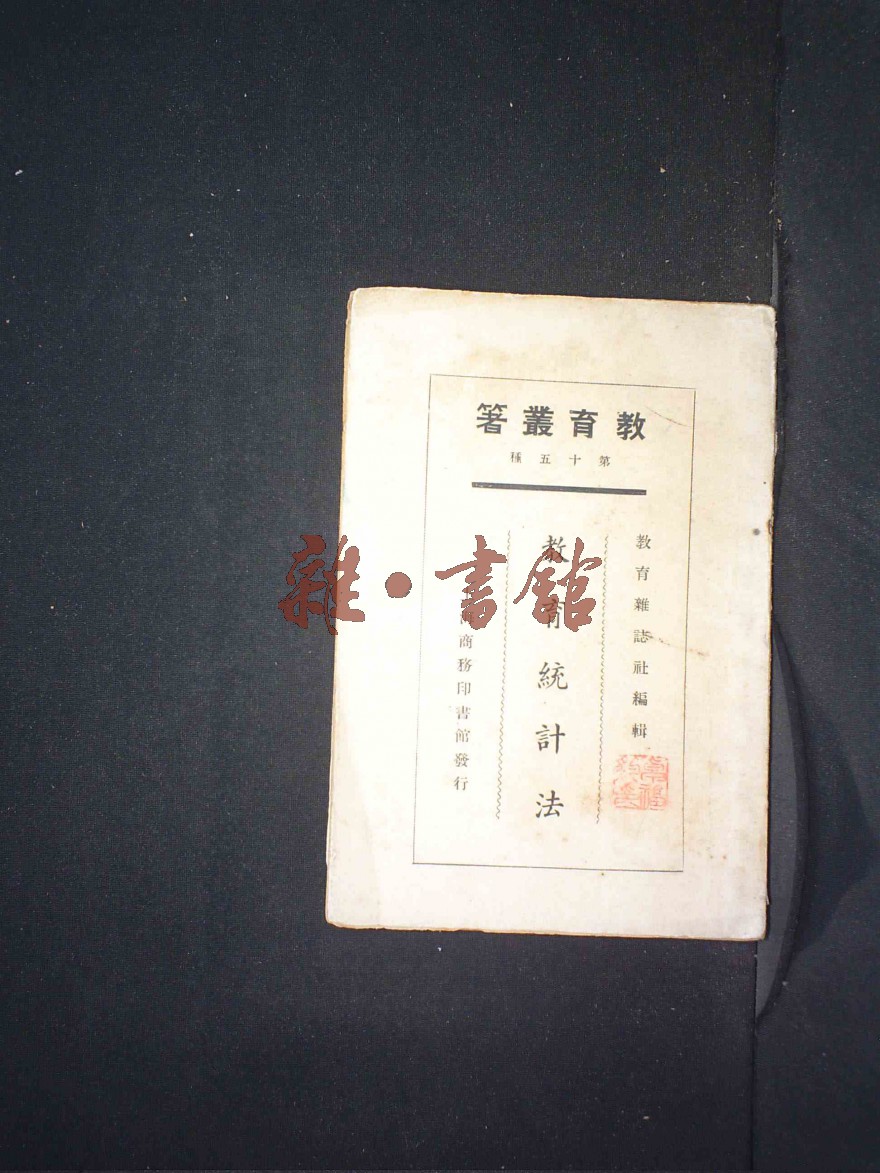 教育叢著
第十五種
教育雜誌社編輯
教育統計法
海商務印書館發行
雜·書館